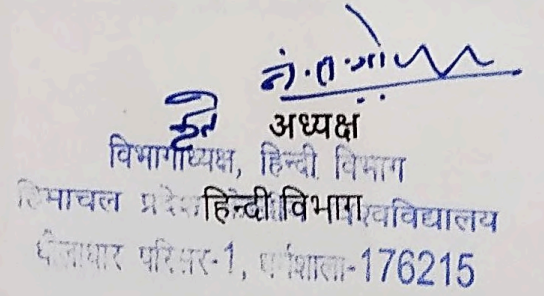 अध्यक्ष
विभागाध्यक्ष, हिन्दी विभाग
हिमाचल प्रदेश हिन्दी विभाग विश्वविद्यालय
धौलाधार परिसर-1, धर्मशाला-176215